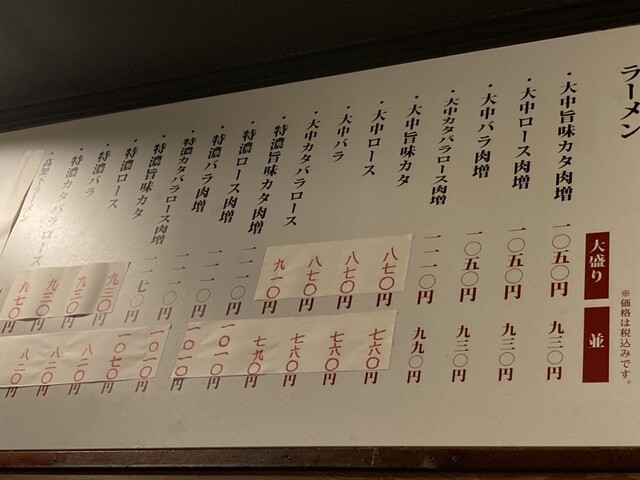 ラーメン
※価格は税込みです。
大盛り
並
・大中旨味カタ肉増 一〇五〇円 九三〇円
・大中ロース肉増 一〇五〇円 九三〇円
・大中バラ肉増 一〇五〇円 九三〇円
・大中カタバラロース肉増 一一一〇円 九九〇円
・大中旨味カタ 八七〇円 七六〇円
・大中ロース 八七〇円 七六〇円
・大中バラ 八七〇円 七六〇円
・大中カタバラロース 九一〇円 七九〇円
・特濃旨味カタ肉増 一一一〇円 一〇一〇円
・特濃ロース肉増 一一一〇円 一〇一〇円
・特濃バラ肉増 一一一〇円 一〇一〇円
・特濃カタバラロース肉増 一一七〇円 一〇七〇円
・特濃旨味カタ 九三〇円 八二〇円
・特濃ロース 九三〇円 八二〇円
・特濃バラ 九三〇円 八二〇円
・特濃カタバラロース 九七〇円